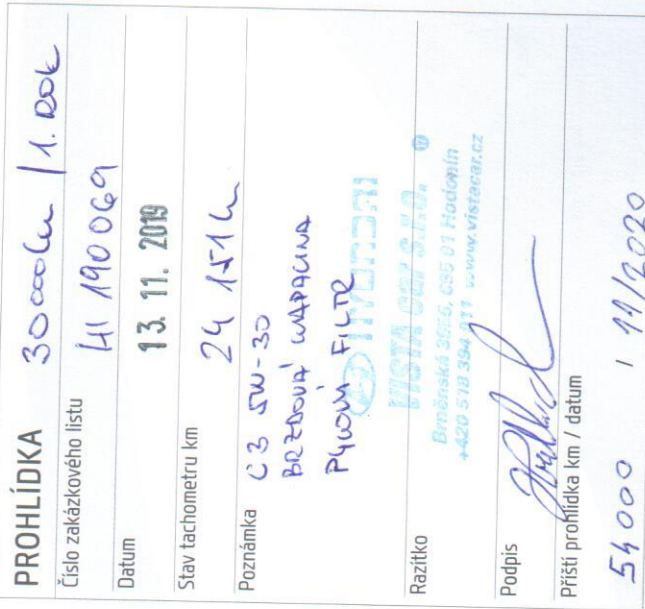 PROHLÍDKA 30000km / 1. ROK
Číslo zakázkového listu 41190069
Datum 13. 11. 2019
Stav tachometru km 24 151 k
Poznámka C3 5W-30
BRZDOVÁ KAPALINA
PYLOVÝ FILTR
HYUNDAI
VISTA car s.r.o.
Brněnská 3965, 695 01 Hodonín
+420 518 394 911 www.vistacar.cz
Razítko
Podpis
Příští prohlídka km / datum
54 000 / 11/2020